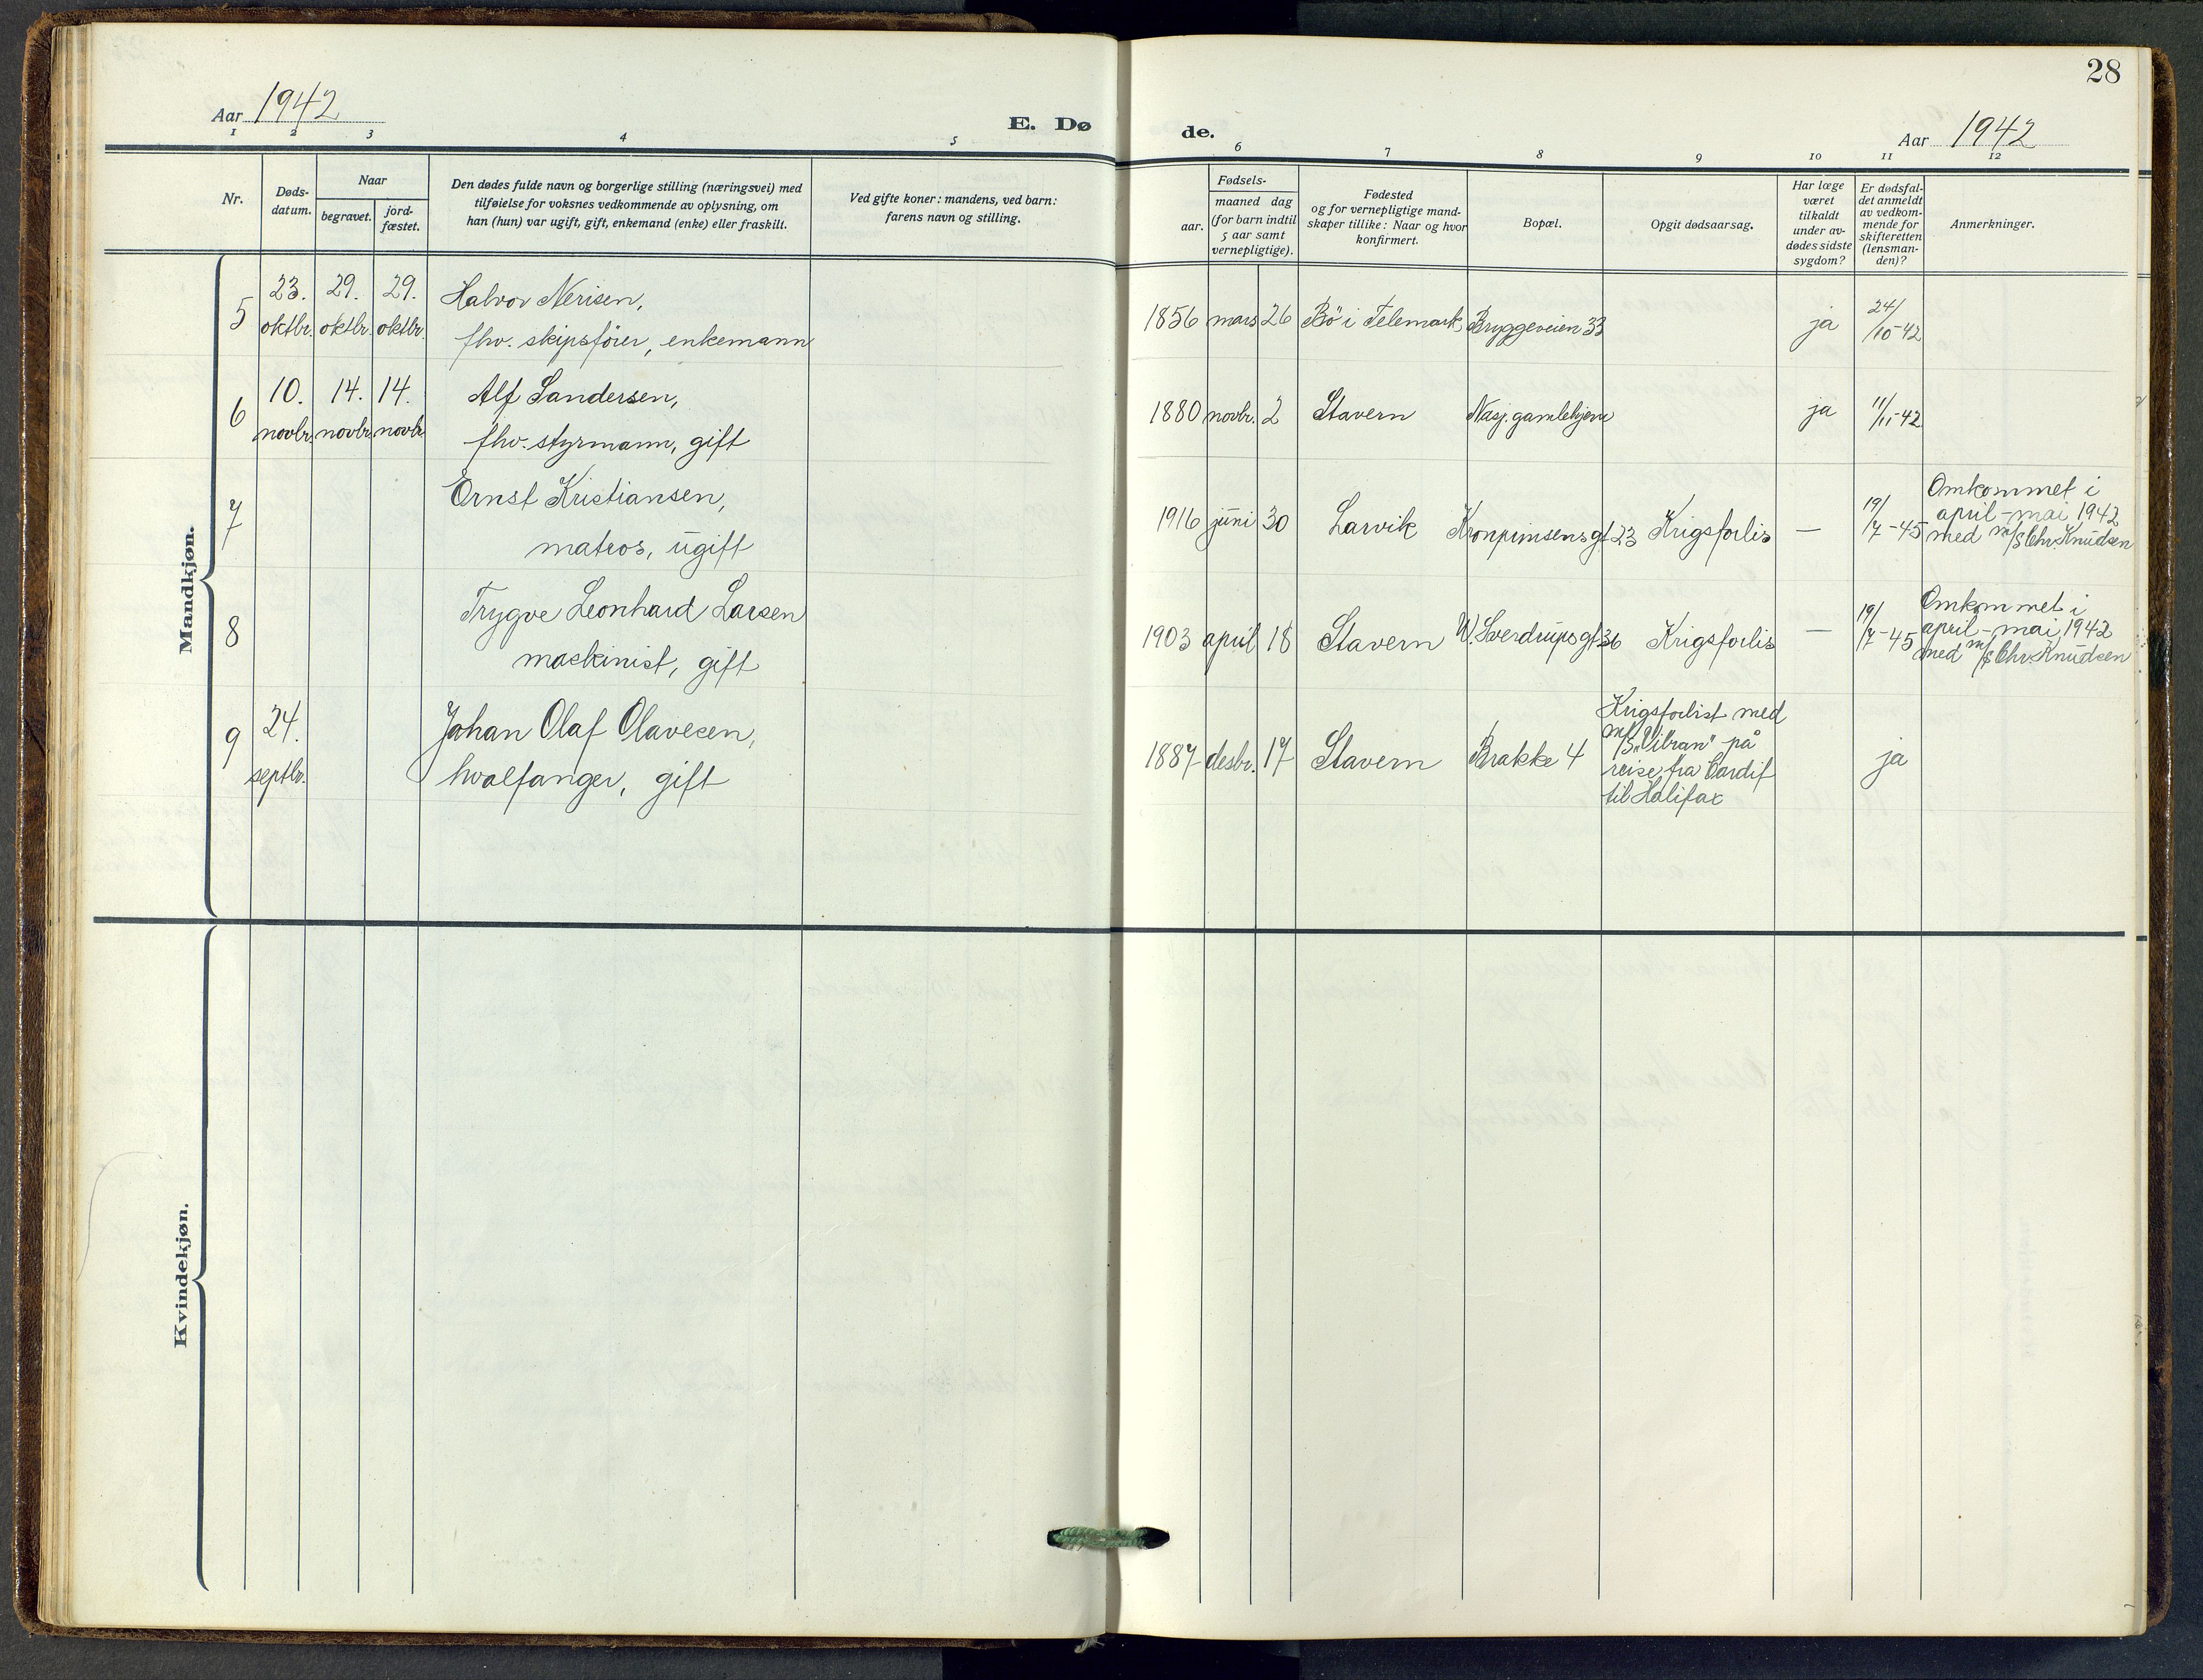 28
Aar 1942
E. Dø de.
Aar 1942
1 2 3 4 5 6 7 8 9 10 11 12
Nr.
Døds-
datum.
Naar
begravet.
jord-
fæstet.
Den dødes fulde navn og borgerlige stilling (næringsvei) med
tilføielse for voksnes vedkommende av oplysning, om
han (hun) var ugift, gift, enkemand (enke) eller fraskilt.
Ved gifte koner: mandens, ved barn:
farens navn og stilling.
Fødsels-
aar.
maaned dag
(for barn indtil
5 aar samt
vernepligtige).
Fødested
og for vernepligtige mand-
skaper tillike: Naar og hvor
konfirmert.
Bopæl.
Opgit dødsaarsag.
Har læge
været
tilkaldt
under av-
dødes sidste
sygdom?
Er dødsfal-
det anmeldt
av vedkom-
mende for
skifteretten
(lensman-
den)?
Anmerkninger.
Mandkjøn.
5
23. oktbr.
29. oktbr.
29. oktbr.
Halvor Nerisen,
fhv. skipsfører, enkemann
1856 mars 26
Bö i Telemark
Bryggeveien 33
ja
24/
/10-42
6
10. novbr.
14. novbr.
14. novbr.
Alf Sandersen,
fhv. styrmann, gift
1880 novbr. 2
Stavern
Nasj. gamlehjem
ja
11/
/11-42
7
Ernst Kristiansen,
matros, ugift
1916 juni 30
Larvik
Kronprinsensgt. 23
Krigsforlis
—
19/
/7-45
Omkommet i
april-mai 1942
med m/s Chr. Knudsen
8
Trygve Leonhard Larsen
maskinist, gift
1903 april 18
Stavern
W. Sverdrupsgt 36
Krigsforlis
—
19/
/7-45
Omkommet i
april-mai 1942
med m/s Chr. Knudsen
9
24. septbr.
Johan Olaf Olavesen,
hvalfanger, gift
1887 desbr. 17
Stavern
Brakke 4
Krigsforlist med
m/s "Vibran" på
reise fra Cardif
til Halifax
ja
Kvindekjøn.